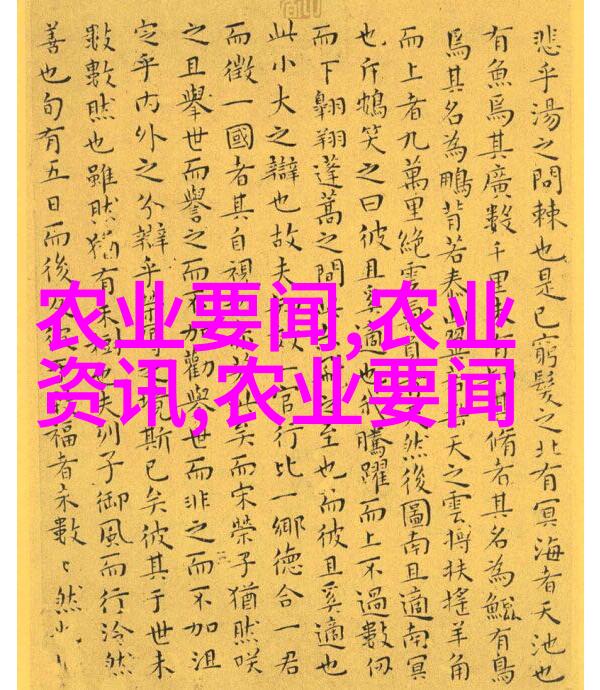 农业要闻,农业
资讯,农业要闻
悲乎湯之問棘也是已窮髮之北有冥海者天池也
有魚焉其廣數千里未有其脩者其名為鯤有鳥
焉其名為鵬背若泰山翼若天之雲搏扶搖羊角
而上者九萬里絕雲氣負然後圖南且適南冥
也斥鴳笑之曰彼且奚適也我騰躍而上不過數仞
而下翱翔蓬蒿之間之至也而彼且奚適也
此小大之辯也故夫一官行比一鄉德合一君
而徵一國者其自視矣而宋榮子猶然咲
之且舉世而譽之而不加勸舉世而非之而不加沮
定乎內外之分辯乎境斯已矣彼其于世未
數數然也雖然猶有未樹也夫列子御風而行泠然
善也旬有五日而後福者未數〻然也